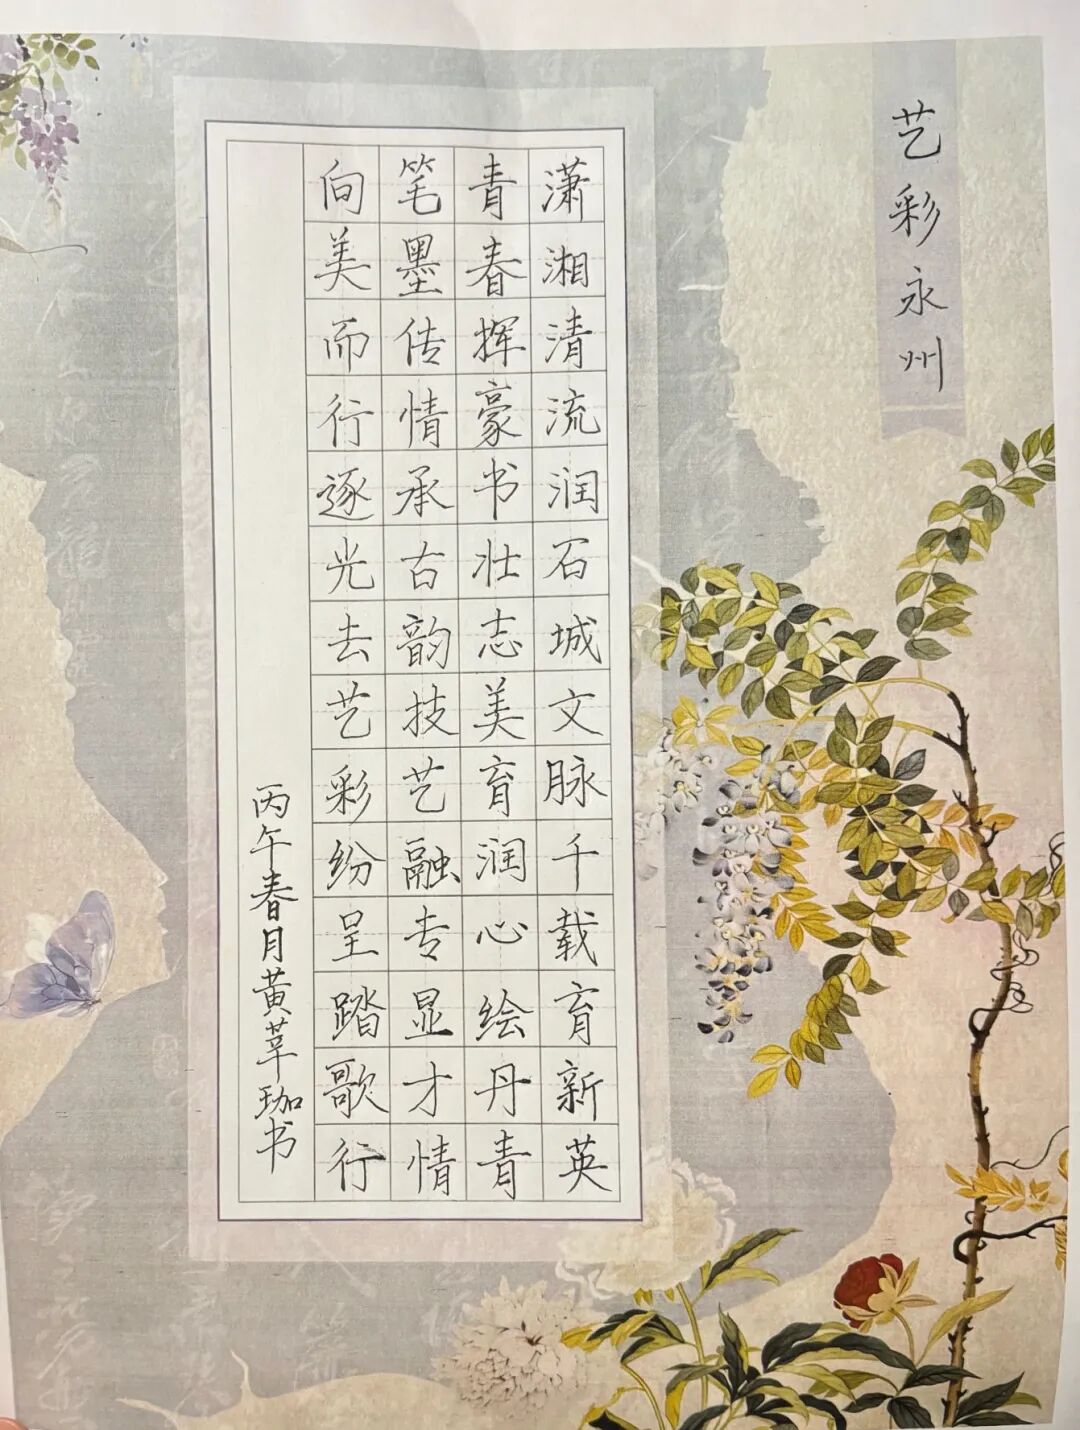 艺彩永州
潇湘清流润石城文脉千载育新英
青春挥豪书壮志美育润心绘丹青
笔墨传情承古韵技艺融专显才情
向美而行逐光去艺彩纷呈踏歌行
丙午春月黄苹珈书